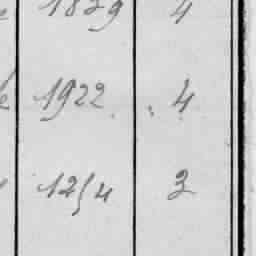 1829 4
1922 4
1254 3